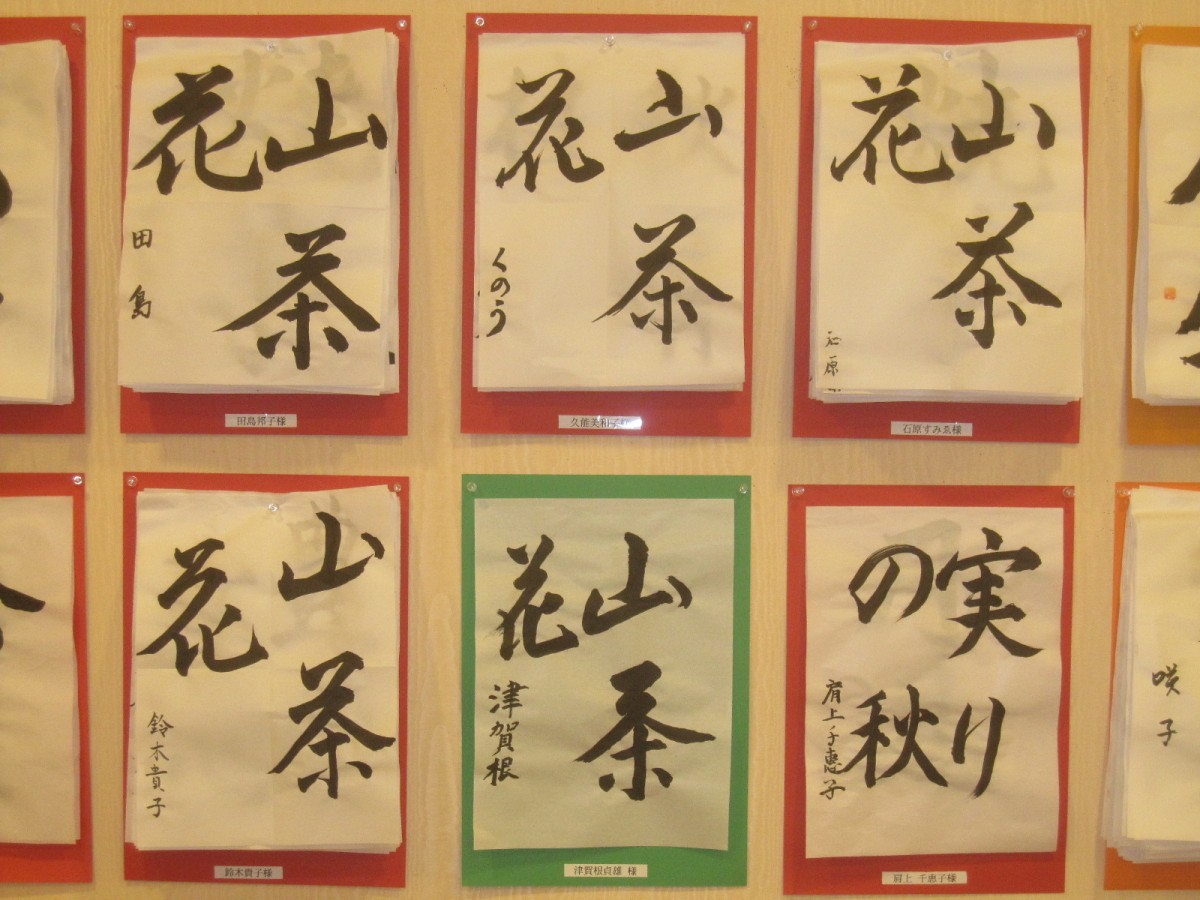 山茶
花
田島
田島邦子様
山茶
花
くのう
山茶
花
石原
石原すみゑ様
山茶
花
鈴木貴子
鈴木貴子様
山茶
花
津賀根
津賀根貞雄 様
実り
の秋
肩上千恵子
肩上 千恵子様
咲子